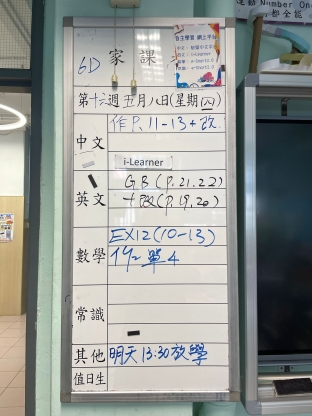 6D 家課
自主學習 網上平台
第十六週 五月八日(星期四)
中文 作P.11-13+改
i-Learner
英文 GB(P.21.22)
(P.19.20)
數學 EX12(10-13)
單4
常識
其他 明天13:30放學
值日生
Number One
都全能